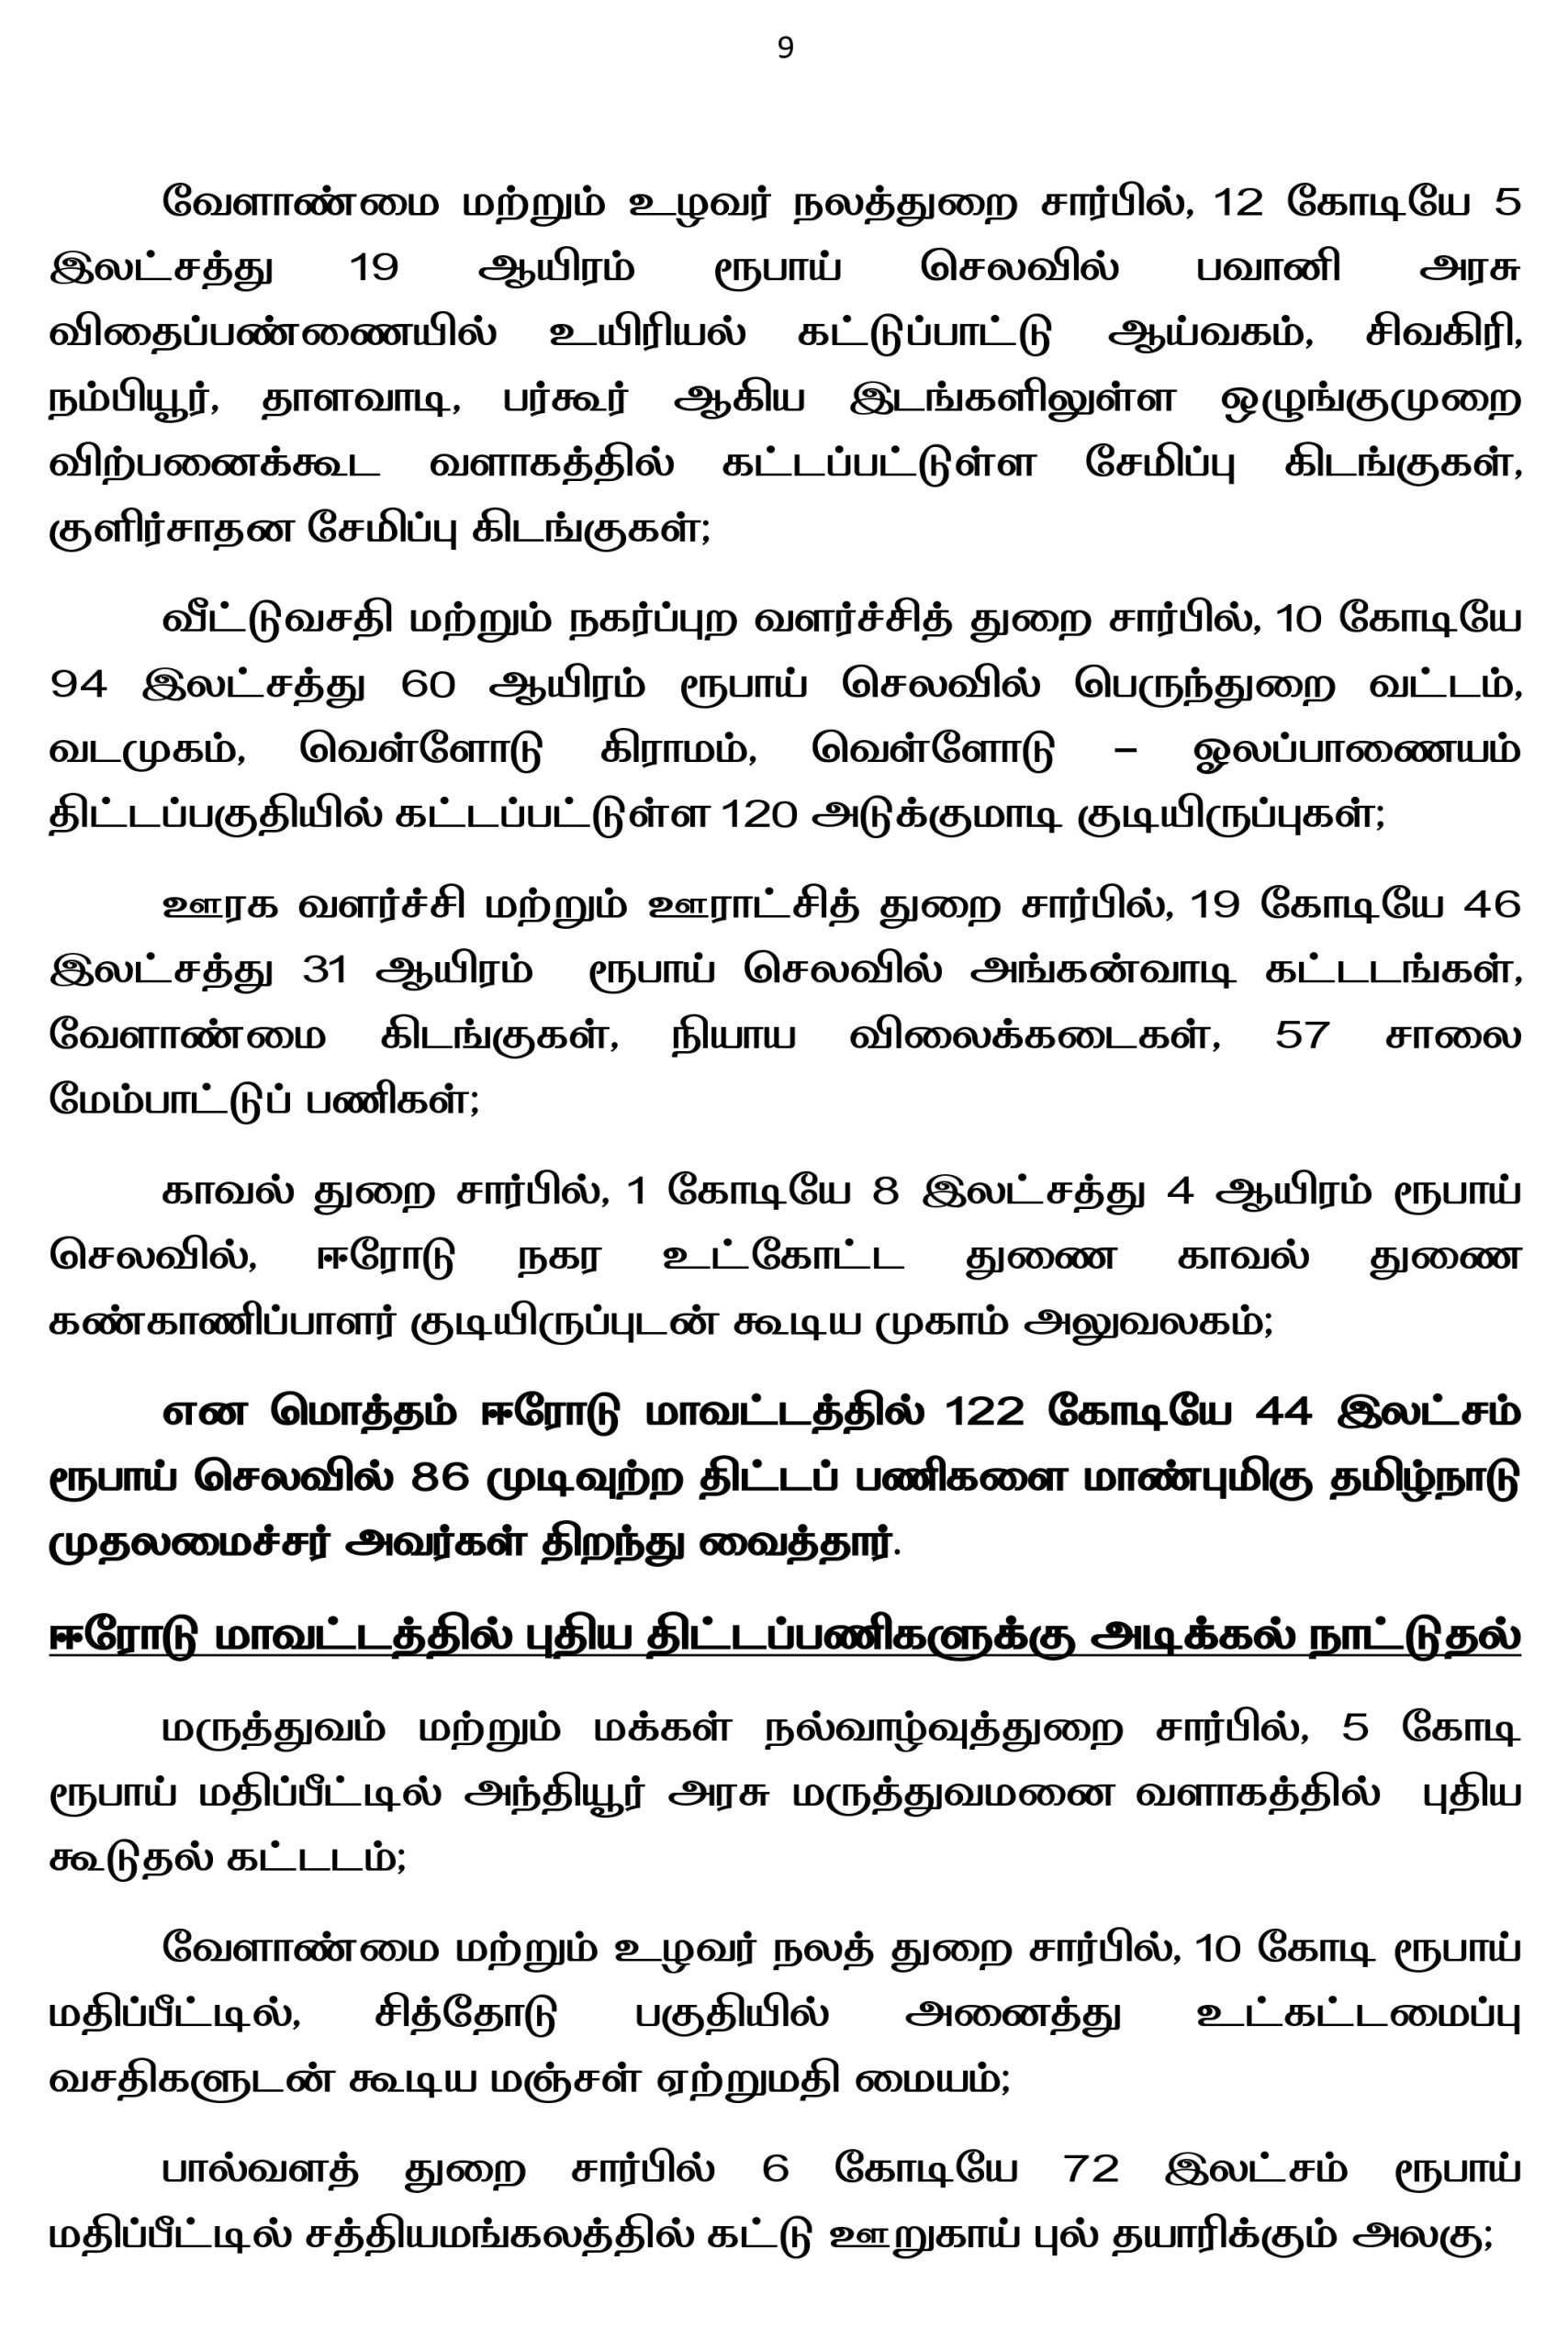 9
வேளாண்மை மற்றும் உழவர் நலத்துறை சார்பில், 12 கோடியே 5
இலட்சத்து 19 ஆயிரம் ரூபாய் செலவில் பவானி அரசு
விதைப்பண்ணையில் உயிரியல் கட்டுப்பாட்டு ஆய்வகம், சிவகிரி,
நம்பியூர், தாளவாடி, பர்கூர் ஆகிய இடங்களிலுள்ள ஒழுங்குமுறை
விற்பனைக்கூட வளாகத்தில் கட்டப்பட்டுள்ள சேமிப்பு கிடங்குகள்,
குளிர்சாதன சேமிப்பு கிடங்குகள்;
வீட்டுவசதி மற்றும் நகர்ப்புற வளர்ச்சித் துறை சார்பில், 10 கோடியே
94 இலட்சத்து 60 ஆயிரம் ரூபாய் செலவில் பெருந்துறை வட்டம்,
வடமுகம், வெள்ளோடு கிராமம், வெள்ளோடு – ஓலப்பாணையம்
திட்டப்பகுதியில் கட்டப்பட்டுள்ள 120 அடுக்குமாடி குடியிருப்புகள்;
ஊரக வளர்ச்சி மற்றும் ஊராட்சித் துறை சார்பில், 19 கோடியே 46
இலட்சத்து 31 ஆயிரம் ரூபாய் செலவில் அங்கன்வாடி கட்டடங்கள்,
வேளாண்மை கிடங்குகள், நியாய விலைக்கடைகள், 57 சாலை
மேம்பாட்டுப் பணிகள்;
காவல் துறை சார்பில், 1 கோடியே 8 இலட்சத்து 4 ஆயிரம் ரூபாய்
செலவில், ஈரோடு நகர உட்கோட்ட துணை காவல் துணை
கண்காணிப்பாளர் குடியிருப்புடன் கூடிய முகாம் அலுவலகம்;
என மொத்தம் ஈரோடு மாவட்டத்தில் 122 கோடியே 44 இலட்சம்
ரூபாய் செலவில் 86 முடிவுற்ற திட்டப் பணிகளை மாண்புமிகு தமிழ்நாடு
முதலமைச்சர் அவர்கள் திறந்து வைத்தார்.
ஈரோடு மாவட்டத்தில் புதிய திட்டப்பணிகளுக்கு அடிக்கல் நாட்டுதல்
மருத்துவம் மற்றும் மக்கள் நல்வாழ்வுத்துறை சார்பில், 5 கோடி
ரூபாய் மதிப்பீட்டில் அந்தியூர் அரசு மருத்துவமனை வளாகத்தில் புதிய
கூடுதல் கட்டடம்;
வேளாண்மை மற்றும் உழவர் நலத் துறை சார்பில், 10 கோடி ரூபாய்
மதிப்பீட்டில், சித்தோடு பகுதியில் அனைத்து உட்கட்டமைப்பு
வசதிகளுடன் கூடிய மஞ்சள் ஏற்றுமதி மையம்;
பால்வளத் துறை சார்பில் 6 கோடியே 72 இலட்சம் ரூபாய்
மதிப்பீட்டில் சத்தியமங்கலத்தில் கட்டு ஊறுகாய் புல் தயாரிக்கும் அலகு;